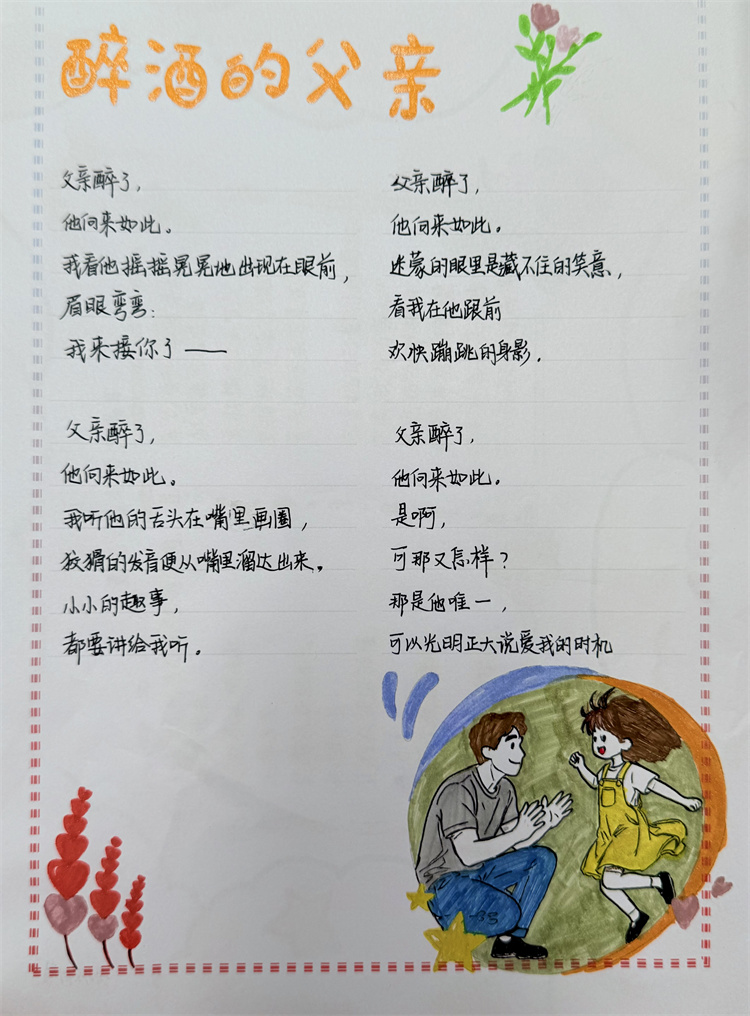 醉酒的父亲
父亲醉了，
他向来如此。
我看他摇摇晃晃地出现在眼前，
眉眼弯弯：
我来接你了——
父亲醉了，
他向来如此。
我听他的舌头在嘴里画圈，
狡猾的发音便从嘴里溜达出来。
小小的趣事，
都要讲给我听。
父亲醉了，
他向来如此。
迷蒙的眼里是藏不住的笑意，
看我在他跟前
欢快蹦跳的身影．
父亲醉了，
他向来如此。
是啊，
可那又怎样？
那是他唯一，
可以光明正大说爱我的时机